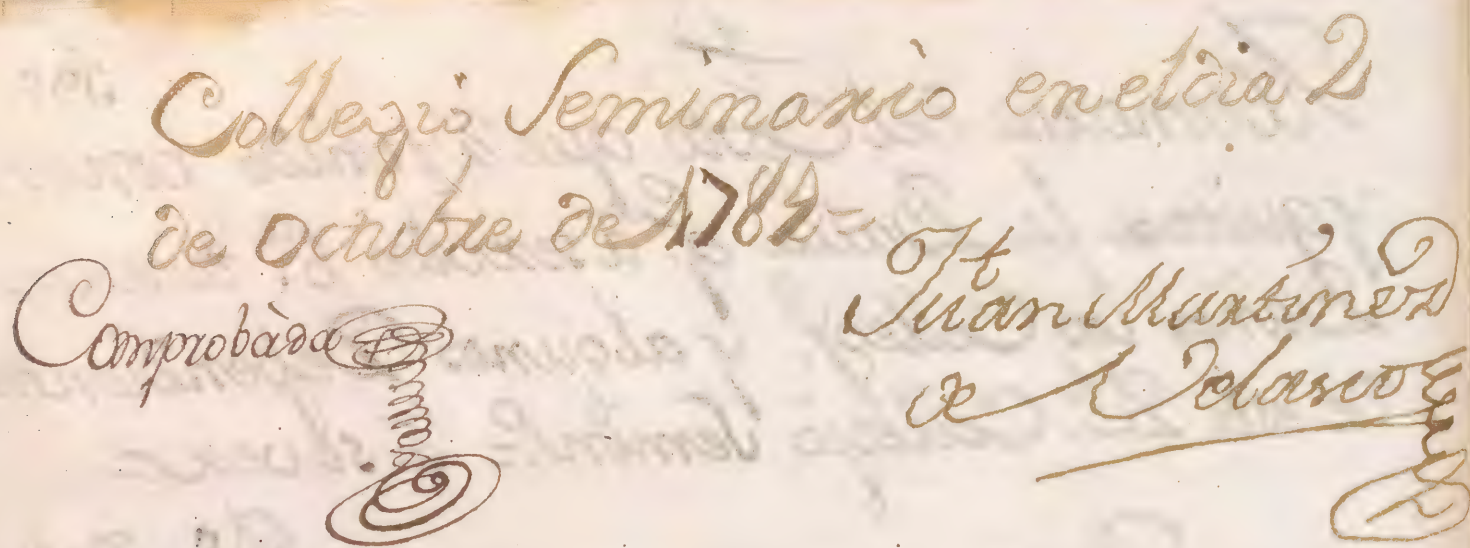 Collegio Seminario en el dia 2
de Octubre de 1782=
Comprobàda
Juan Martinez
de Velasco